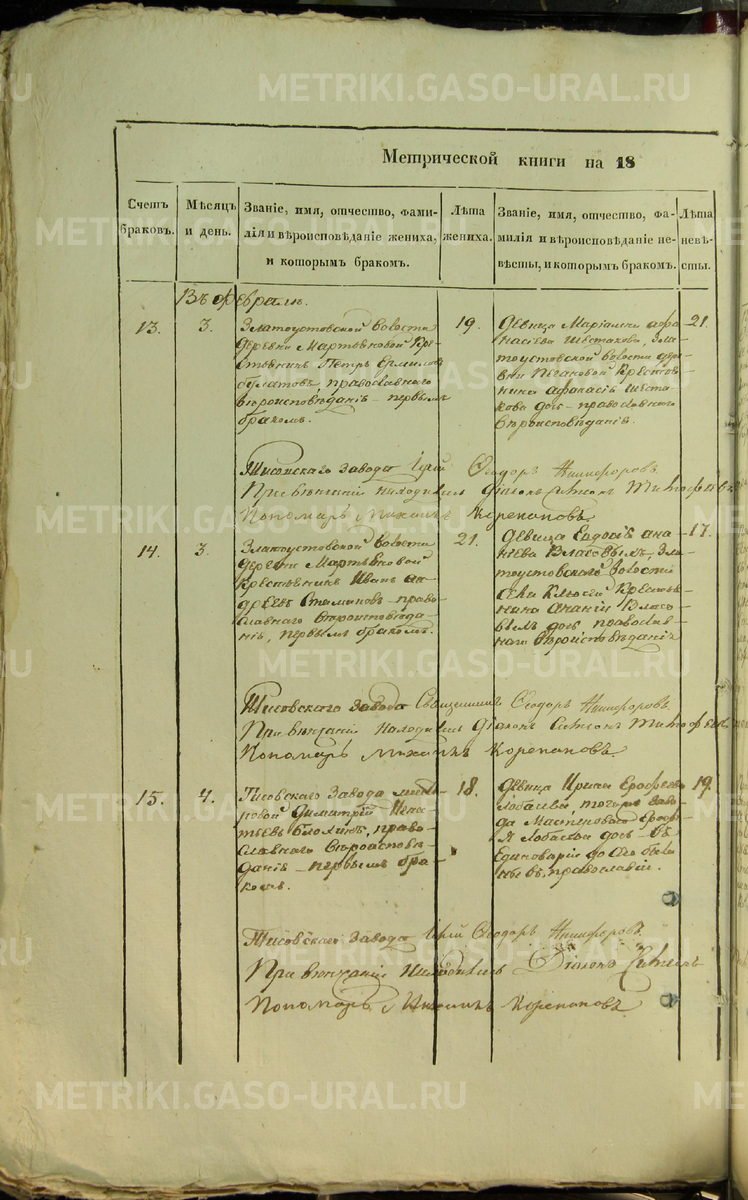 METRIKI.GASO-URAL.RU
Метрической книги на 18
Счетъ браковъ.
Мѣсяцъ и день.
Званіе, имя, отчество, фамилія и вѣроисповѣданіе жениха, и которымъ бракомъ.
Лѣта жениха.
Званіе, имя, отчество, фамилія и вѣроисповѣданіе невѣсты, и которымъ бракомъ.
Лѣта невѣсты.
Въ Февралѣ.
13.
3.
Златоустовской волости
деревни Мартьяновой Кре-
стьянинъ Петръ Ермиловъ
православнаго
вѣроисповѣданія первымъ
бракомъ.
19.
Девица Маріамна Афа-
насьева Шестакова, Зла-
тоустовской волости дер-
вни Крестья-
нина Афанасія Шеста-
кова дочь православнаго
вѣроисповѣданія.
21.
Тисовскаго завода Іерей Ѳеодоръ Никифоровъ
При вѣнчаніи находились Діаконъ Симеонъ
Пономарь Михаилъ Корепановъ
14.
3.
Златоустовской волости
деревни Мартьяновой
крестьянинъ Иванъ Ан-
дреевъ право-
славнаго вѣроисповѣда-
нія, первымъ бракомъ.
21.
Девица Евдокія Ана-
ньева Зла-
тоустовской волости
села Крестья-
нина Ананіи
дочь православ-
наго вѣроисповѣданія
17.
Тисовскаго завода Священникъ Ѳеодоръ Никифоровъ
При вѣнчаніи находились Діаконъ Симеонъ
Пономарь Михаилъ Корепановъ
15.
4.
Тисовскаго завода
Димитрій Игна-
тьевъ право-
славнаго вѣроисповѣ-
данія первымъ бра-
комъ.
18.
Девица Ирина Ерофеева
тогоже заво-
да Мастероваго Ероѳ-
я дочь въ
Единоверіи
православіи.
19.
Тисовскаго завода Іерей Ѳеодоръ Никифоровъ
При вѣнчаніи находились Діаконъ Симеонъ
Пономарь Михаилъ Корепановъ
METRIKI.GASO-URAL.RU